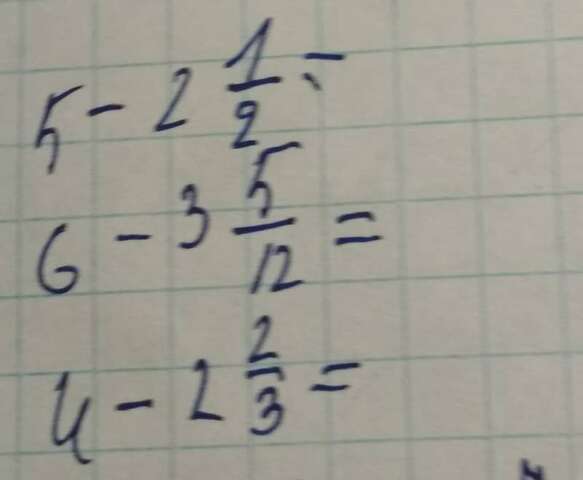 5 - 2 1/2 =
6 - 3 5/12 =
4 - 2 2/3 =